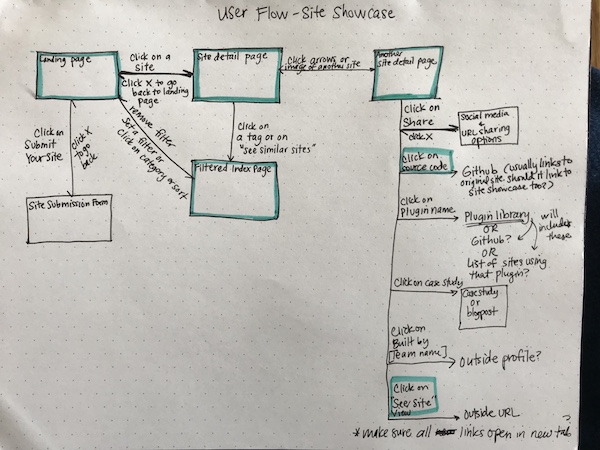 User Flow - Site Showcase
Landing page
Click on a
site
Click X to go
back to landing
page
Site detail page
Click arrows or
image of another site
Another
Site detail page
Click on
Submit
Your Site
click X
to go
back
remove filter
Set a filter or
Click on category or sort
Click
on
a tag or on
"see similar sites"
Filtered Index Page
Site Submission Form
Click on
Share
click X
Social media
+
URL sharing
options
Click on
source code
Github (usually links to
original site. Should it link to
site showcase too?)
Click on
Plugin name
Plugin library
OR
Github?
OR
List of sites using
that plugin?
will
include
these
Click on case study
Case study
or
blogpost
Click on
Built by
[Team name]
outside profile?
Click on
"See Site"
View
outside URL
* make sure all links open in new tab ?